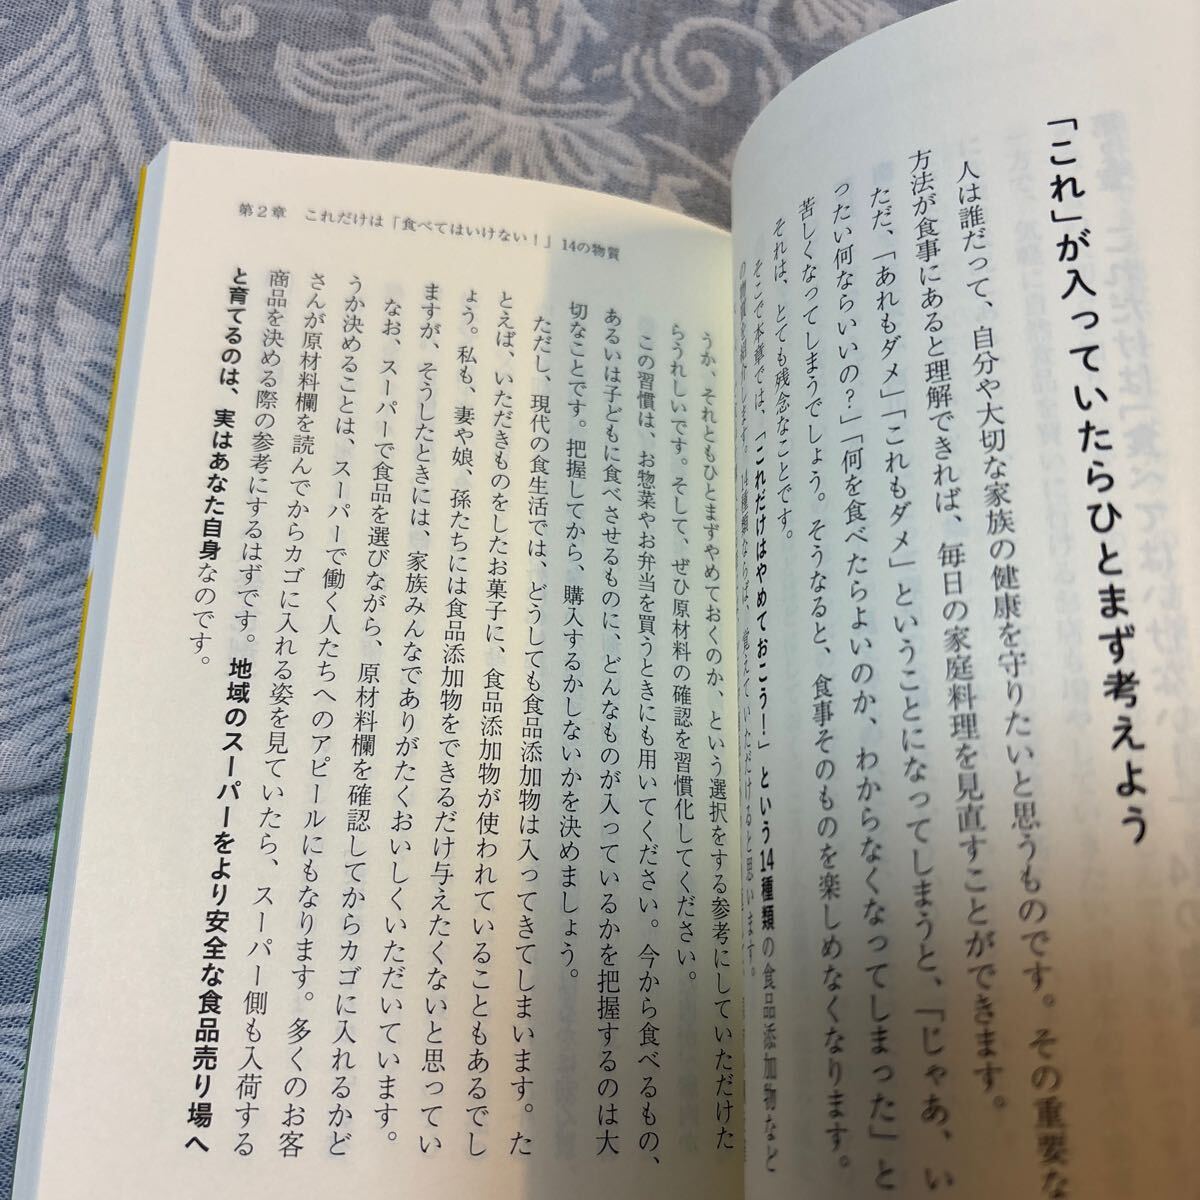 「これ」が入っていたらひとまず考えよう
人は誰だって、自分や大切な家族の健康を守りたいと思うものです。その重要な
方法が食事にあると理解できれば、毎日の家庭料理を見直すことができます。
ただ、「あれもダメ」「これもダメ」ということになってしまうと、「じゃあ、い
ったい何ならいいの？」「何を食べたらよいのか、わからなくなってしまった」と
苦しくなってしまうでしょう。そうなると、食事そのものを楽しめなくなります。
それは、とても残念なことです。
そこで本章では、「これだけはやめておこう！」という14種類の食品添加物など
の物質を紹介します。14種類ならば、覚えていただけると思います。
第２章　これだけは「食べてはいけない！」14の物質
うか、それともひとまずやめておくのか、という選択をする参考にしていただけた
らうれしいです。そして、ぜひ原材料の確認を習慣化してください。
この習慣は、お惣菜やお弁当を買うときにも用いてください。今から食べるもの、
あるいは子どもに食べさせるものに、どんなものが入っているかを把握するのは大
切なことです。把握してから、購入するかしないかを決めましょう。
ただし、現代の食生活では、どうしても食品添加物は入ってきてしまいます。た
とえば、いただきものをしたお菓子に、食品添加物が使われていることもあるでし
ょう。私も、妻や娘、孫たちには食品添加物をできるだけ与えたくないと思ってい
ますが、そうしたときには、家族みんなでありがたくおいしくいただいています。
なお、スーパーで食品を選びながら、原材料欄を確認してからカゴに入れるかど
うか決めることは、スーパーで働く人たちへのアピールにもなります。多くのお客
さんが原材料欄を読んでからカゴに入れる姿を見ていたら、スーパー側も入荷する
商品を決める際の参考にするはずです。地域のスーパーをより安全な食品売り場へ
と育てるのは、実はあなた自身なのです。